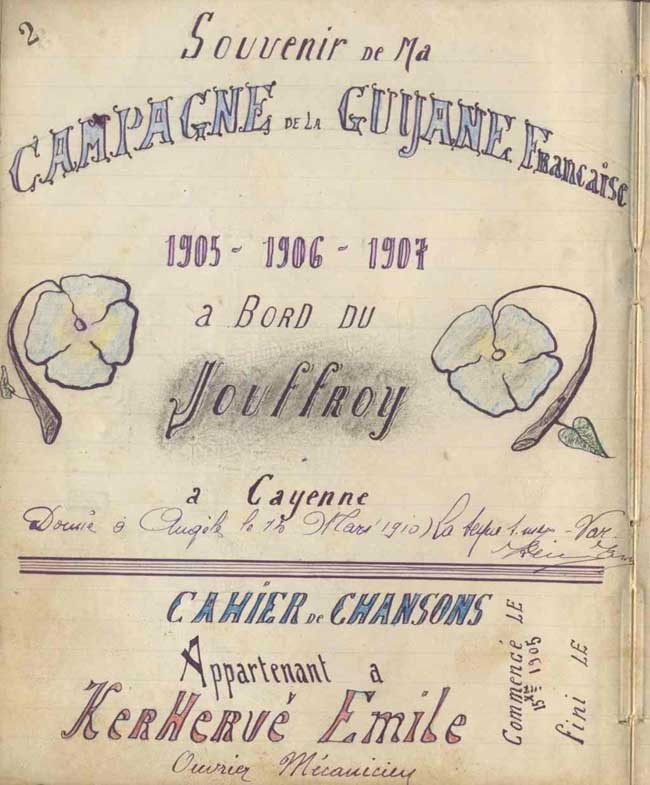 2
Souvenir de Ma
CAMPAGNE DE LA GUIJANE Francaise
1905 - 1906 - 1907
a BORD DU
Jouffroy
a Cayenne
Donné à Angèle le 12 Mars 1910 La Seyne s. mer - Var -
CAHIER de CHANSONS
Appartenant a
KerHervé Emile
Ouvrier Mécanicien
Commencé LE
15 XII 1905
fini LE